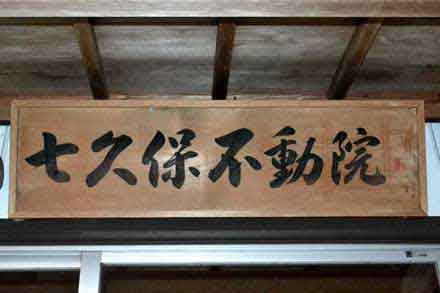 七久保不動院